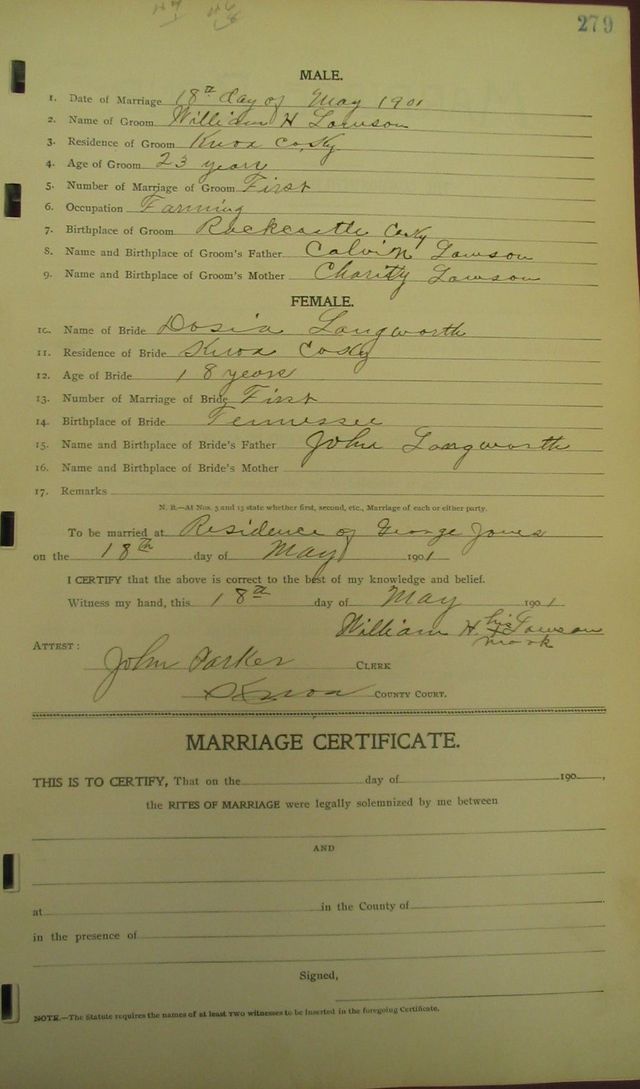 279
MALE.
1. Date of Marriage 18th day of May 1901
2. Name of Groom William H Lawson
3. Residence of Groom Knox Co. Ky
4. Age of Groom 23 years
5. Number of Marriage of Groom First
6. Occupation Farming
7. Birthplace of Groom Rockcastle Co Ky
8. Name and Birthplace of Groom's Father Calvin Lawson
9. Name and Birthplace of Groom's Mother Charitty Lawson
FEMALE.
10. Name of Bride Dosia Longworth
11. Residence of Bride Knox Co Ky
12. Age of Bride 18 years
13. Number of Marriage of Bride First
14. Birthplace of Bride Tennessee
15. Name and Birthplace of Bride's Father John Longworth
16. Name and Birthplace of Bride's Mother
17. Remarks
N. B.—At Nos. 5 and 13 state whether first, second, etc., Marriage of each or either party.
To be married at Residence of George Jones
on the 18th day of May 1901
I CERTIFY that the above is correct to the best of my knowledge and belief.
Witness my hand, this 18th day of May 1901
William H his x Lawson
mark
ATTEST:
John Parker CLERK
Knox COUNTY COURT.
MARRIAGE CERTIFICATE.
THIS IS TO CERTIFY, That on the day of 190 ,
the RITES OF MARRIAGE were legally solemnized by me between
AND
at in the County of
in the presence of
Signed,
NOTE.—The Statute requires the names of at least TWO witnesses to be inserted in the foregoing Certificate.